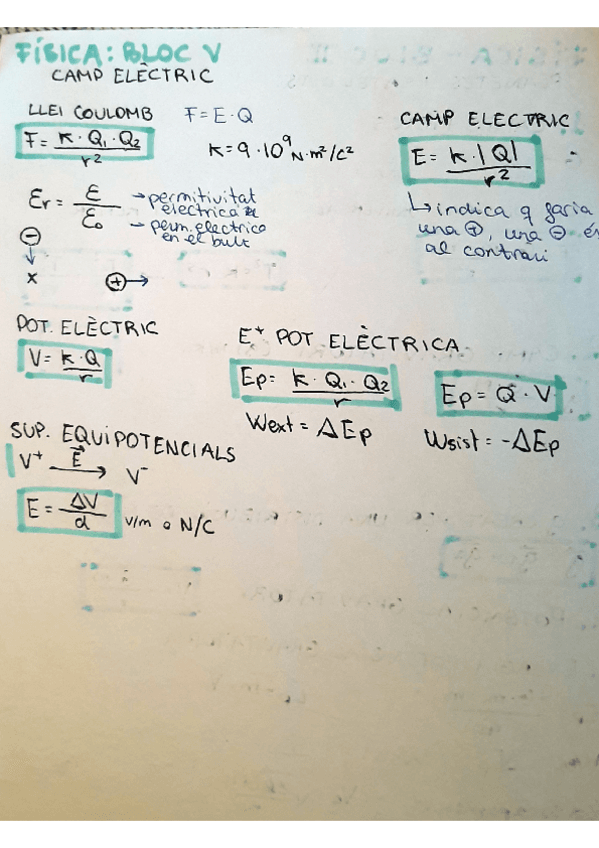 FÍSICA: BLOC V
CAMP ELÈCTRIC
LLEI COULOMB
F = E · Q
F = K · Q₁ · Q₂ / r²
K = 9 · 10⁹ N·m²/C²
CAMP ELECTRIC
E = K · |Q| / r²
↳ indica q faria
una ⊕, una ⊖ és
al contrari
Er = ε / ε₀
→ permitivitat
electrica
→ perm. electrica
en el buit
⊖
↓
x ⊕→
POT. ELÈCTRIC
V = K · Q / r
E⁺ POT. ELÈCTRICA
Ep = K · Q₁ · Q₂ / r
Ep = Q · V
Wext = ΔEp
Wsist = -ΔEp
SUP. EQUIPOTENCIALS
V⁺ E⃗ → V⁻
E = ΔV / d V/m o N/C